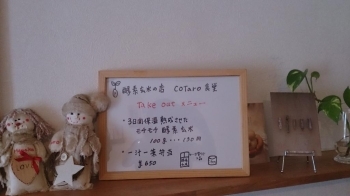 酵素玄米の店 COTaro 真里
Take out メニュー
・3日間保温熟成させた
モチモチ 酵素玄米
100g・・・130円
・一汁一菜弁当
¥650
LOVE